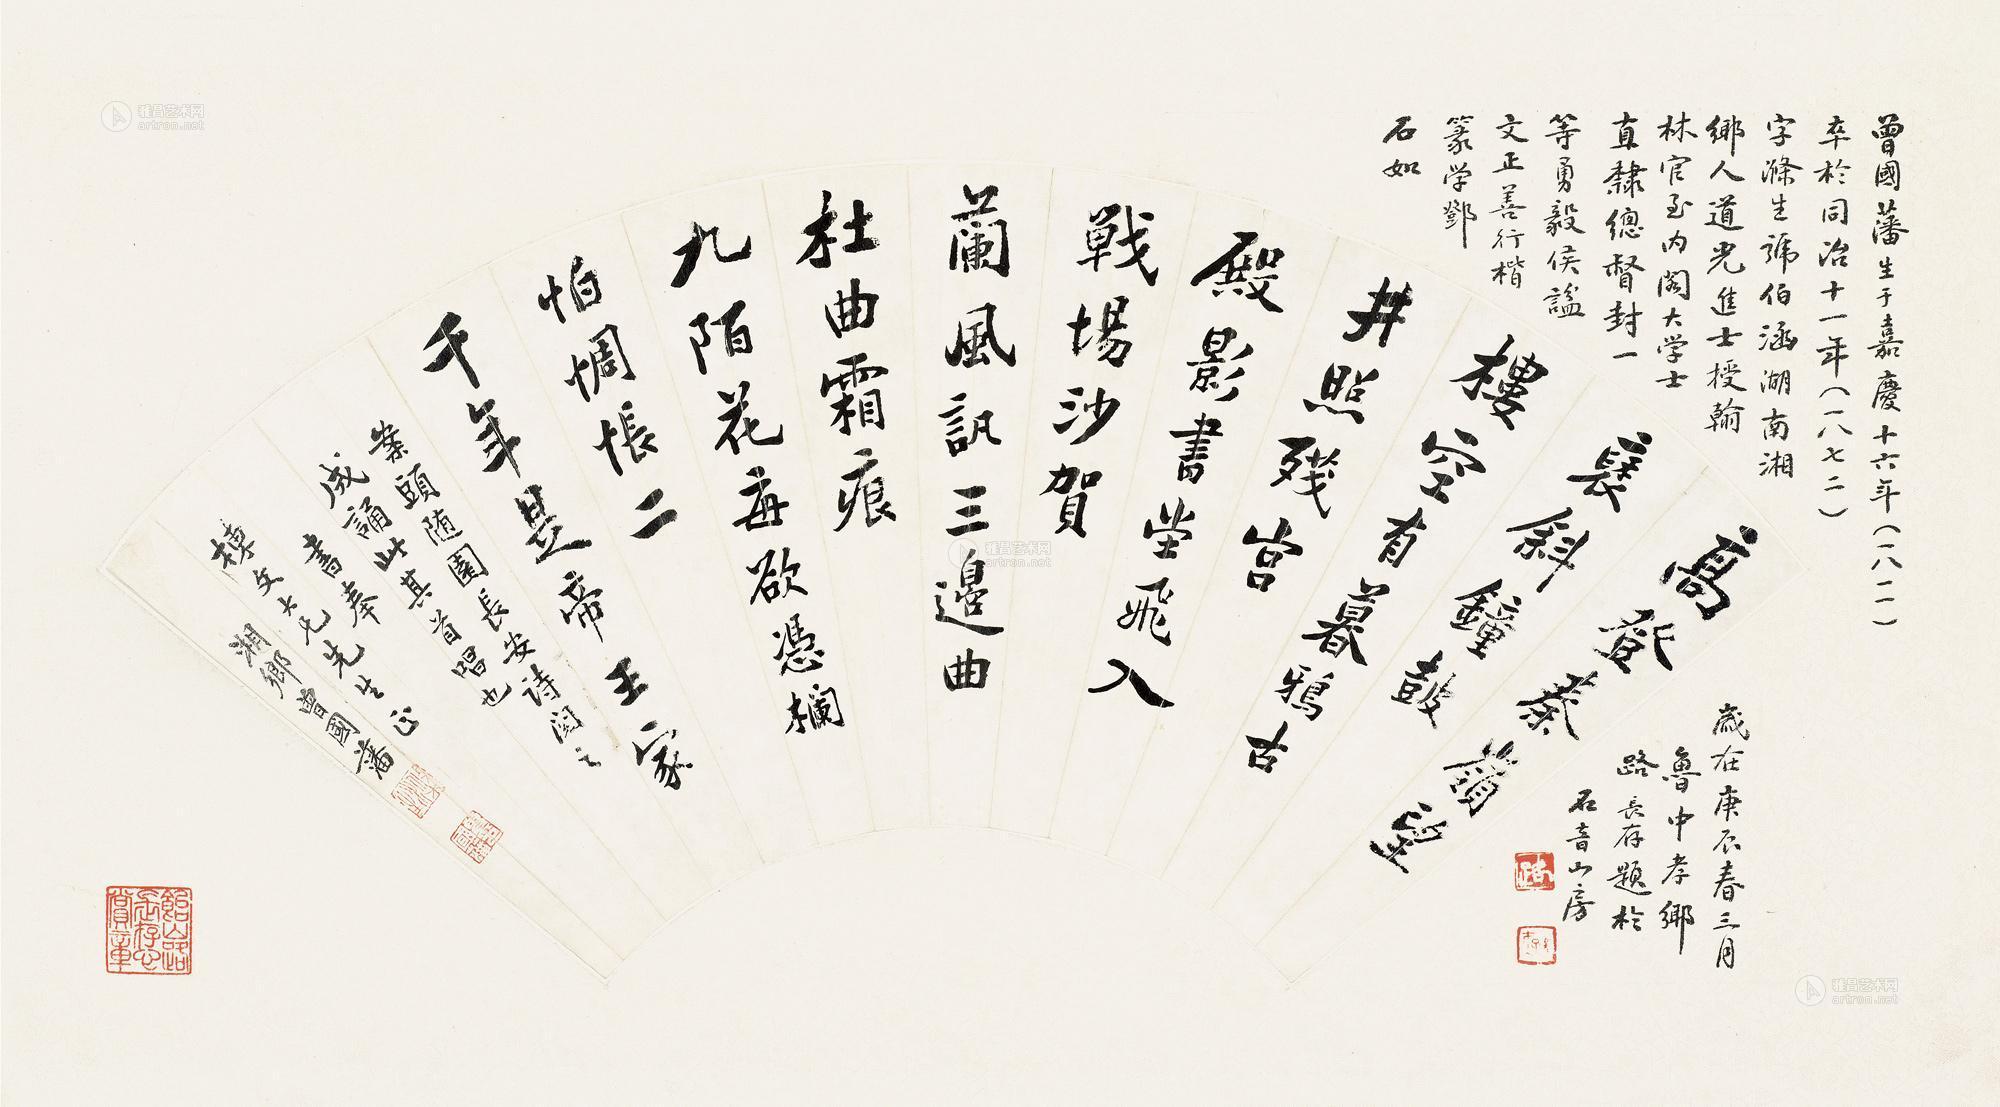 曾國藩生于嘉慶十六年（一八一一）
卒於同治十一年（一八七二）
字滌生號伯涵湖南湘
鄉人道光進士授翰
林官至内閣大学士
直隸總督封一
等勇毅侯謚
文正善行楷
篆学鄧
石如
高登秦嶺望
褒斜鐘鼓
樓空有暮鴉古
井照殘宮
殿影書堂飛入
戰場沙賀
蘭風訊三邊曲
杜曲霜痕
九陌花每欲憑欄
怕惆悵二
千年是帝王家
案頭随園長安詩閱之
成誦此其首唱也
書奉
樸文大兄先生正
湘鄉曾國藩
歲在庚辰春三月
魯中孝鄉
路長存題於
石音山房
雅昌艺术网
artron.net
雅昌艺术网
artron.net
雅昌艺术网
artron.net